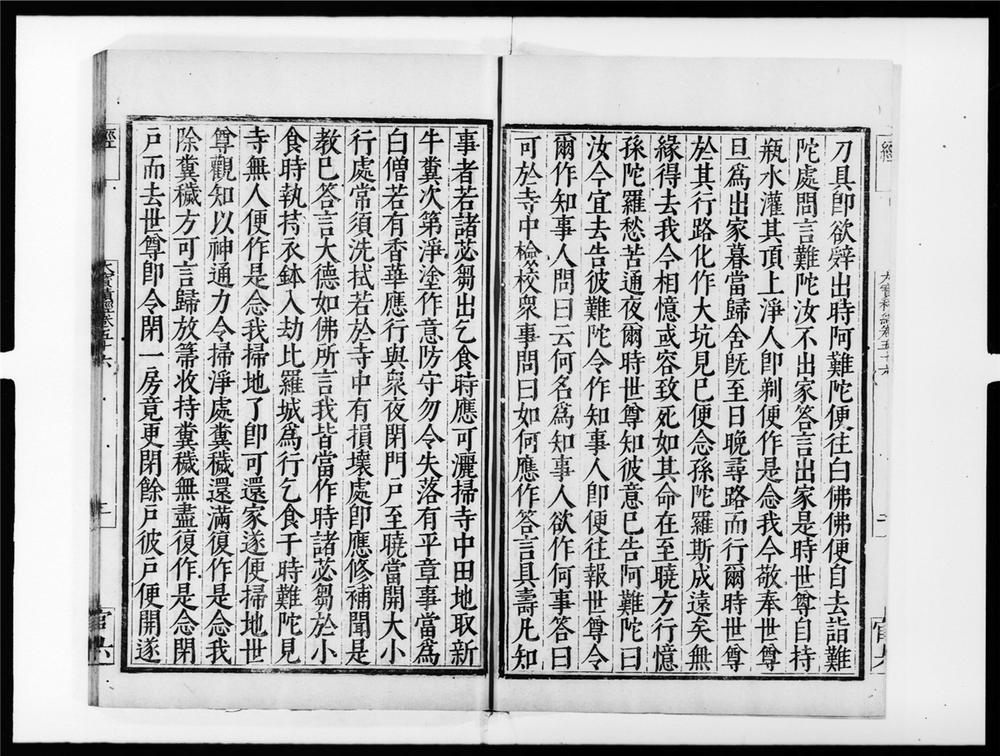 經
大寶積經卷五十六
二
官六
刀具卽欲辟出時阿難陀便往白佛佛便自去詣難
陀處問言難陀汝不出家答言出家是時世尊自持
瓶水灌其頂上淨人卽剃便作是念我今敬奉世尊
旦爲出家暮當歸舍旣至日晚尋路而行爾時世尊
於其行路化作大坑見已便念孫陀羅斯成遠矣無
緣得去我今相憶或容致死如其命在至曉方行憶
孫陀羅愁苦通夜爾時世尊知彼意已告阿難陀曰
汝今宜去告彼難陀令作知事人卽便往報世尊令
爾作知事人問曰云何名爲知事人欲作何事答曰
可於寺中檢挍衆事問曰如何應作答言具壽凡知
事者若諸苾芻出乞食時應可灑掃寺中田地取新
牛糞次第淨塗作意防守勿令失落有平章事當爲
白僧若有香華應行與衆夜閉門戶至曉當開大小
行處常須洗拭若於寺中有損壞處卽應修補聞是
教已答言大德如佛所言我皆當作時諸苾芻於小
食時執持衣鉢入劫比羅城爲行乞食于時難陀見
寺無人便作是念我掃地了卽可還家遂便掃地世
尊觀知以神通力令掃淨處糞穢還滿復作是念我
除糞穢方可言歸放箒收持糞穢無盡復作是念閉
戶而去世尊卽令閉一房竟更閉餘戶彼戶便開遂
經
大寶積經卷五十六
三
官六